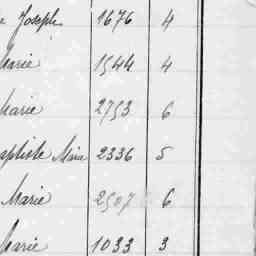 Joseph 1676 4
Marie 1544 4
Marie 2753 6
aptiste Maria 2336 5
Marie 2507 6
Marie 1033 3